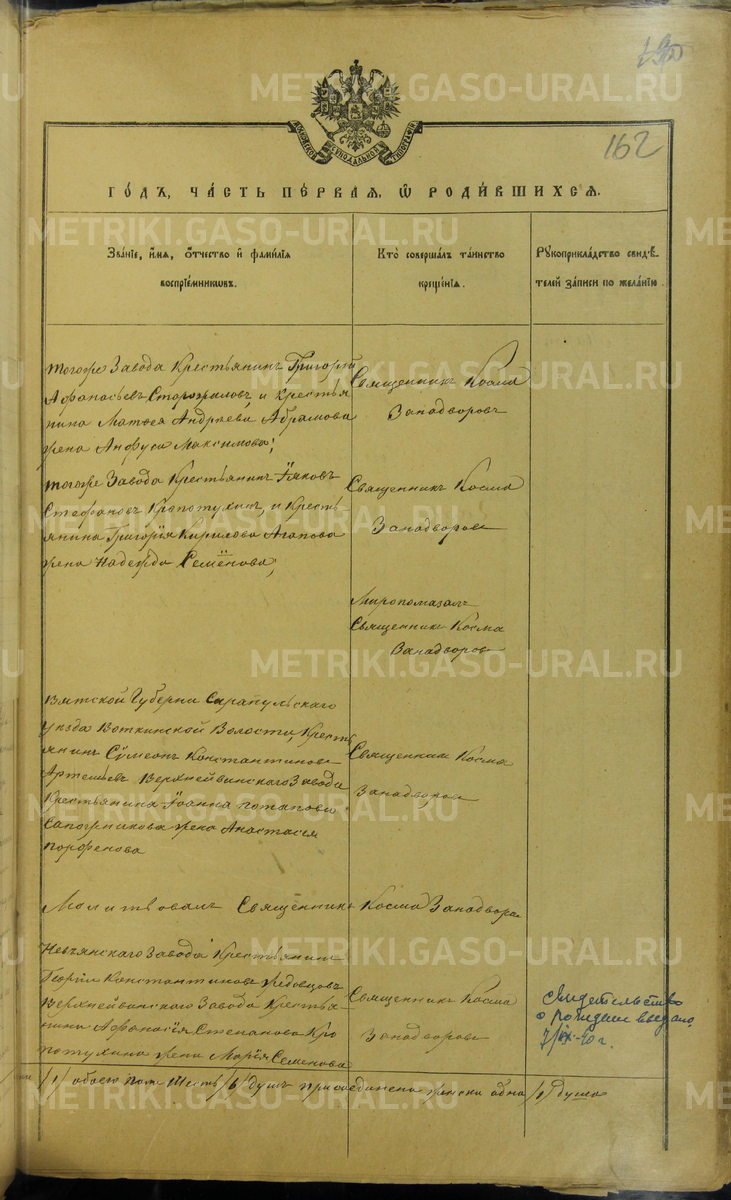 162
МОСКОВСКОЙ СѴНОДАЛЬНОЙ ТИПОГРАФІИ
ГО́ДЪ, ЧА́СТЬ ПЕ́РВАЯ, Ѡ҆ РОДИ́ВШИХСЯ.
Зва́нїе, и҆́мя, ѻ҆́тчество и҆ фами́лїя
воспрїе́мниковъ.
Кто̀ соверша́лъ та́инство
креще́нїя.
Рꙋкоприкла́дство свидѣ́-
телей за́писи по жела́нїю.
тогоже Завода Крестьянин Григорій
Афанасьевъ Сторожиловъ, и крестья
нина Матѳея Андреева Абрамова
жена Анфуса Максимова;
Священникъ Косма
Западворовъ
тогоже Завода Крестьянинъ Іяковъ
Стефановъ Кропотухинъ, и Кресть
янина Григорія Кирилова Агапова
жена Надежда Семёнова;
Священникъ Косма
Западворовъ
Миропомазалъ
Священникъ Косма
Западворовъ
Вятской Губерни Сарапульскаго
уезда Воткинской Волости, Кресть
янинъ Сѷмеонъ Константиновъ
Артемьевъ Верхнейвинскаго Завода
Крестьянина Іоанна Потапова
Сапожникова жена Анастасія
Порфенова
Священникъ Косма
Западворовъ
Молитвовалъ Священникъ Косма Западворов
Невьянскаго Завода Крестьянинъ
Георгій Константиновъ
Верхнейвинскаго Завода Крестья
нина Афанасія Степанова Кро
потухина жена Марѳя Семенова
Священникъ Косма
Западворовъ
Свидетельство
о рождении выдано
7/IX-
/1/ обоего пола Шесть /6/ душъ присоединена женска одна /1/ душа
METRIKI.GASO-URAL.RU